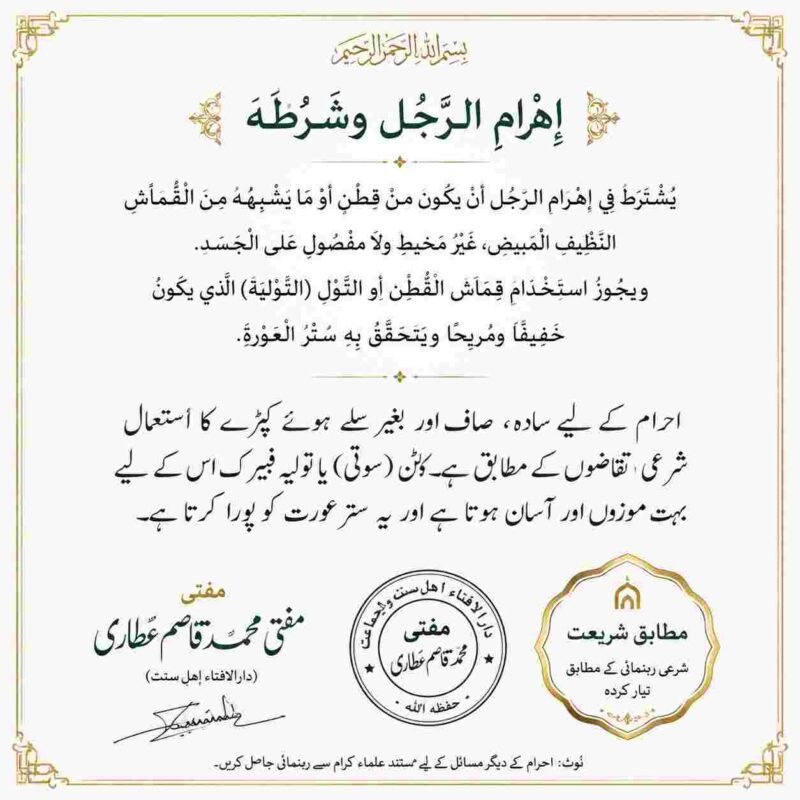 بِسْمِ اللهِ الرَّحْمٰنِ الرَّحِيْمِ
إِهْرامِ الرَّجُل وشَرُطَهَ
يُشْتَرَطُ فِي إِهْرَامِ الرّجُل أنْ يكُونَ منْ قِطْنٍ أوْ مَا يَشْبِهُهُ مِنَ الْقُمَاًش
النَّظِيفِ الْمَبيضِ، غَيْرُ مَخيطٍ ولَا مفْصُولٍ عَلى الْجَسَدِ.
ويجُوزُ استَخْدَام قِمَاَش الْقُطْن أو التَّوْلِ (التَّوْلَيَةَ) الَّذي يكَونُ
خَفِيفًّاَ ومُريِحًا ويَتَحَقَّقُ بِهِ سُتْرُ الْعَوْرةِ.
احرام کے لیے سادہ، صاف اور بغیر سلے ہوئے کپڑے کا أستعمال
شرعی تقاضوں کے مطابق ہے۔ کاٹن (سوتی) یا تولیہ فیبرک اس کے لیے
بہت موزوں اور آسان ہوتا ہے اور یہ ستر عورت کو پورا کرتا ہے۔
مفتی
مفتی محمد قاسم عطاری
(دارالافتاء إهل سنت)
دارالافتاء اهل سنت والجماعت
مفتی
محمد قاسم عطاری
حفظه الله
مطابق شریعت
شرعی رہنمائی کے مطابق
تیار کردہ
نُوٹ: احرام کے دیگر مسائل کے لیے مستند علماء کرام سے رہنمائی حاصل کریں۔